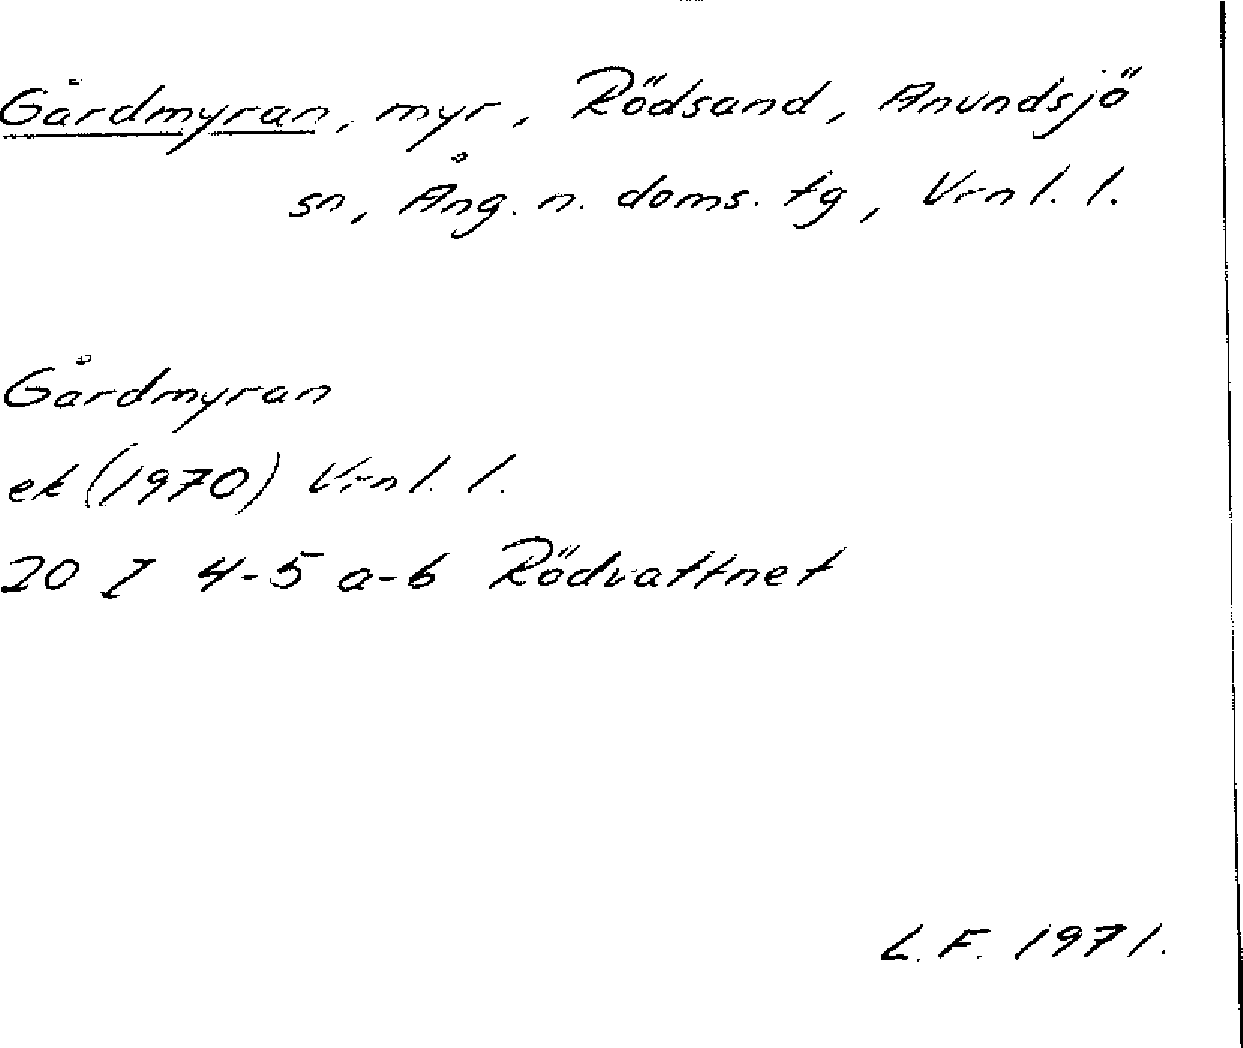 Gårdmyran, myr, Rödsand, Anundsjö
sn, Ång. n. doms. tg, Vrnl. l.
Gårdmyran
ek (1970) Vrnl. l.
20 I 4-5 a-b Rödvattnet
L. F. 1971.